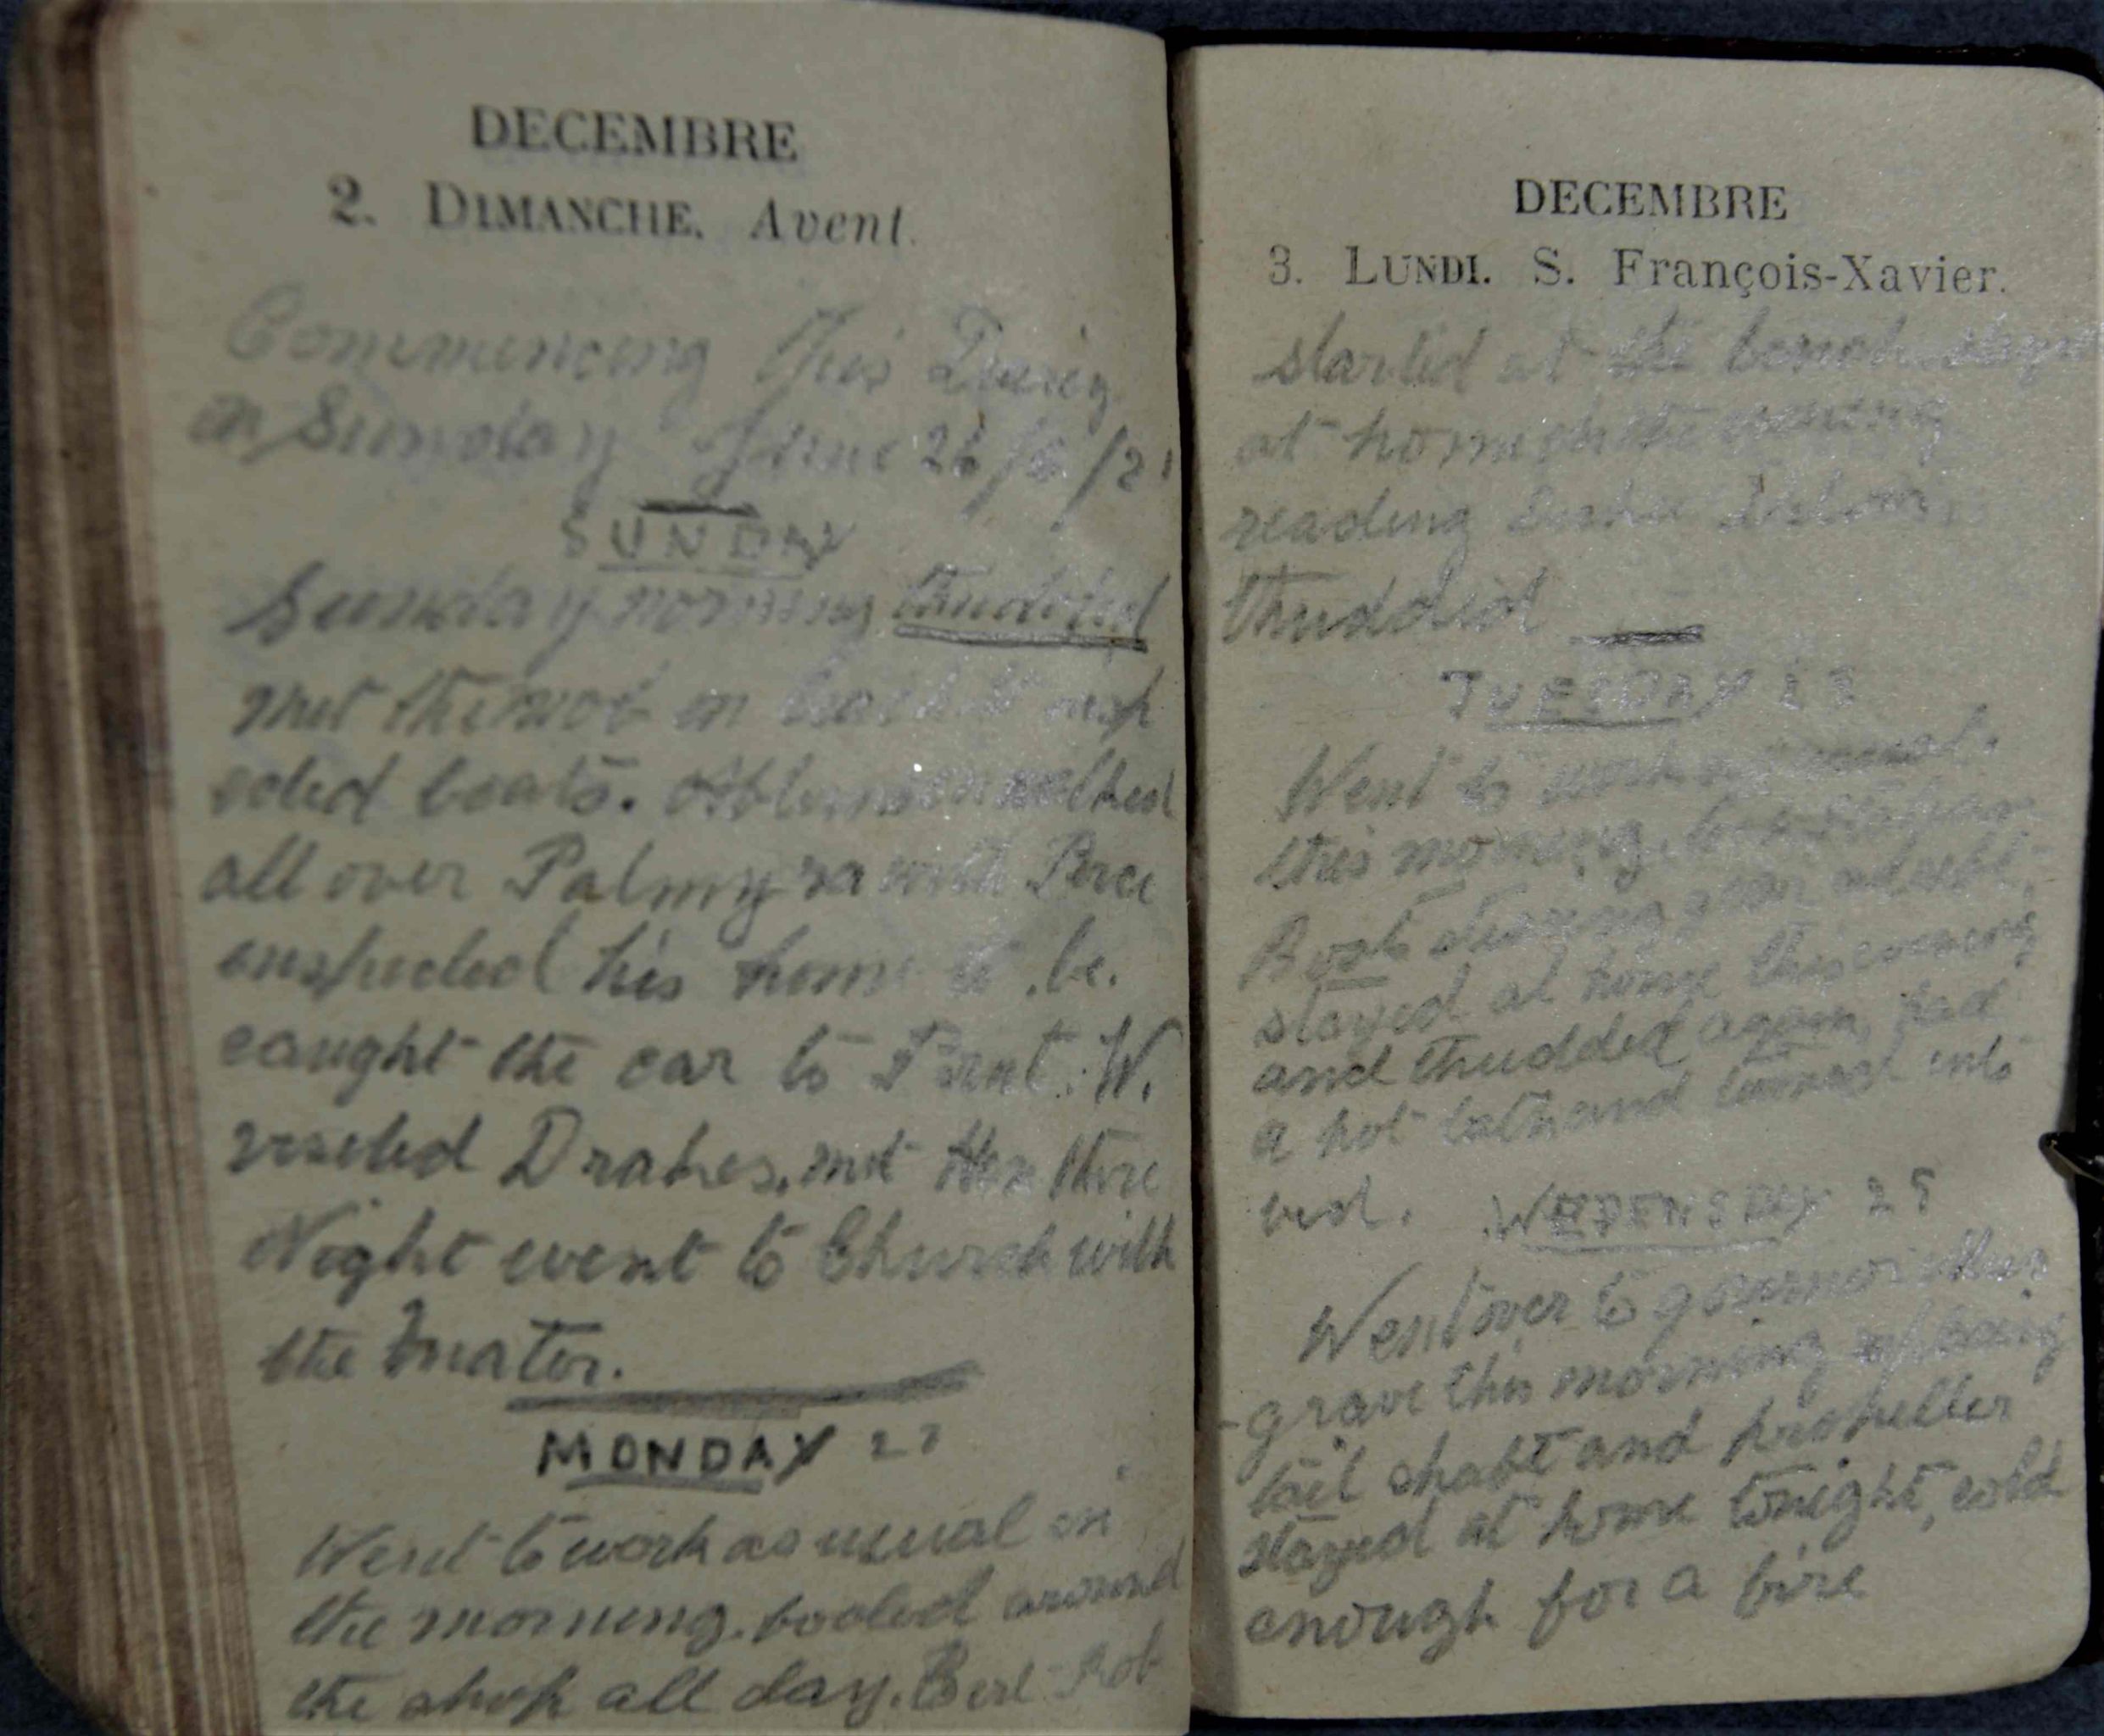 DECEMBRE
2. DIMANCHE. Avent.
Commencing This Diary
on Sunday June 26/6/21
SUNDAY
Sunday morning thudded
met the mob on beach & insp
ected boats. Afternoon walked
all over Palmyra with Perce
inspected his home to be.
caught the car to Point. W.
visited Drakes, met there
Night went to Church with
the mater.
MONDAY 27
Went to work as usual in
the morning. fooled around
the shop all day. Bert Rob
DECEMBRE
3. LUNDI. S. François-Xavier.
started at the bench
at home evening
reading
thudded
TUESDAY 28
Went to work as usual.
this morning.
Boat steering gear
stayed at home this evening
and thudded again, had
a hot bath and turned into
bed. WEDENSDAY 29
Went over to governor
grave this morning replacing
tail shaft and propeller
stayed at home tonight, cold
enough for a fire